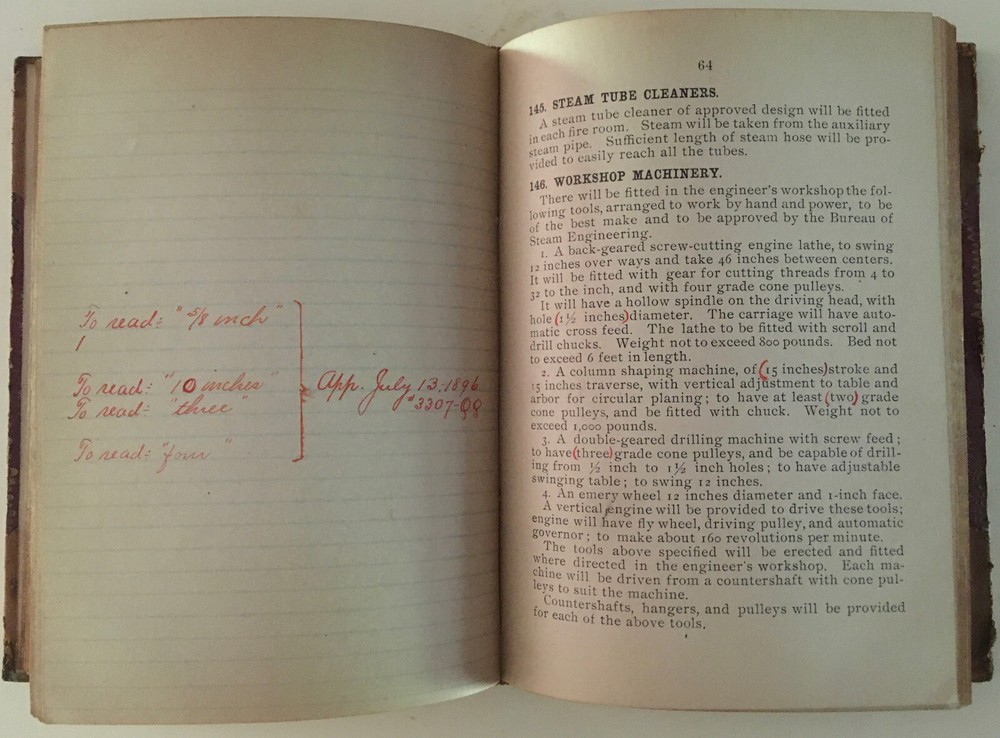 To read: "5/8 inch"
To read: "10 inches"
To read: "three"
To read: "four"
App. July 13. 1896.
64
145. STEAM TUBE CLEANERS.
A steam tube cleaner of approved design will be fitted
in each fire room. Steam will be taken from the auxiliary
steam pipe. Sufficient length of steam hose will be pro-
vided to easily reach all the tubes.
146. WORKSHOP MACHINERY.
There will be fitted in the engineer's workshop the fol-
lowing tools, arranged to work by hand and power, to be
of the best make and to be approved by the Bureau of
Steam Engineering.
1. A back-geared screw-cutting engine lathe, to swing
12 inches over ways and take 46 inches between centers.
It will be fitted with gear for cutting threads from 4 to
32 to the inch, and with four grade cone pulleys.
It will have a hollow spindle on the driving head, with
hole (1½ inches) diameter. The carriage will have auto-
matic cross feed. The lathe to be fitted with scroll and
drill chucks. Weight not to exceed 800 pounds. Bed not
to exceed 6 feet in length.
2. A column shaping machine, of (15 inches) stroke and
15 inches traverse, with vertical adjustment to table and
arbor for circular planing; to have at least (two) grade
cone pulleys, and be fitted with chuck. Weight not to
exceed 1,000 pounds.
3. A double-geared drilling machine with screw feed;
to have (three) grade cone pulleys, and be capable of drill-
ing from ½ inch to 1½ inch holes; to have adjustable
swinging table; to swing 12 inches.
4. An emery wheel 12 inches diameter and 1-inch face.
A vertical engine will be provided to drive these tools;
engine will have fly wheel, driving pulley, and automatic
governor; to make about 160 revolutions per minute.
The tools above specified will be erected and fitted
where directed in the engineer's workshop. Each ma-
chine will be driven from a countershaft with cone pul-
leys to suit the machine.
Countershafts, hangers, and pulleys will be provided
for each of the above tools.